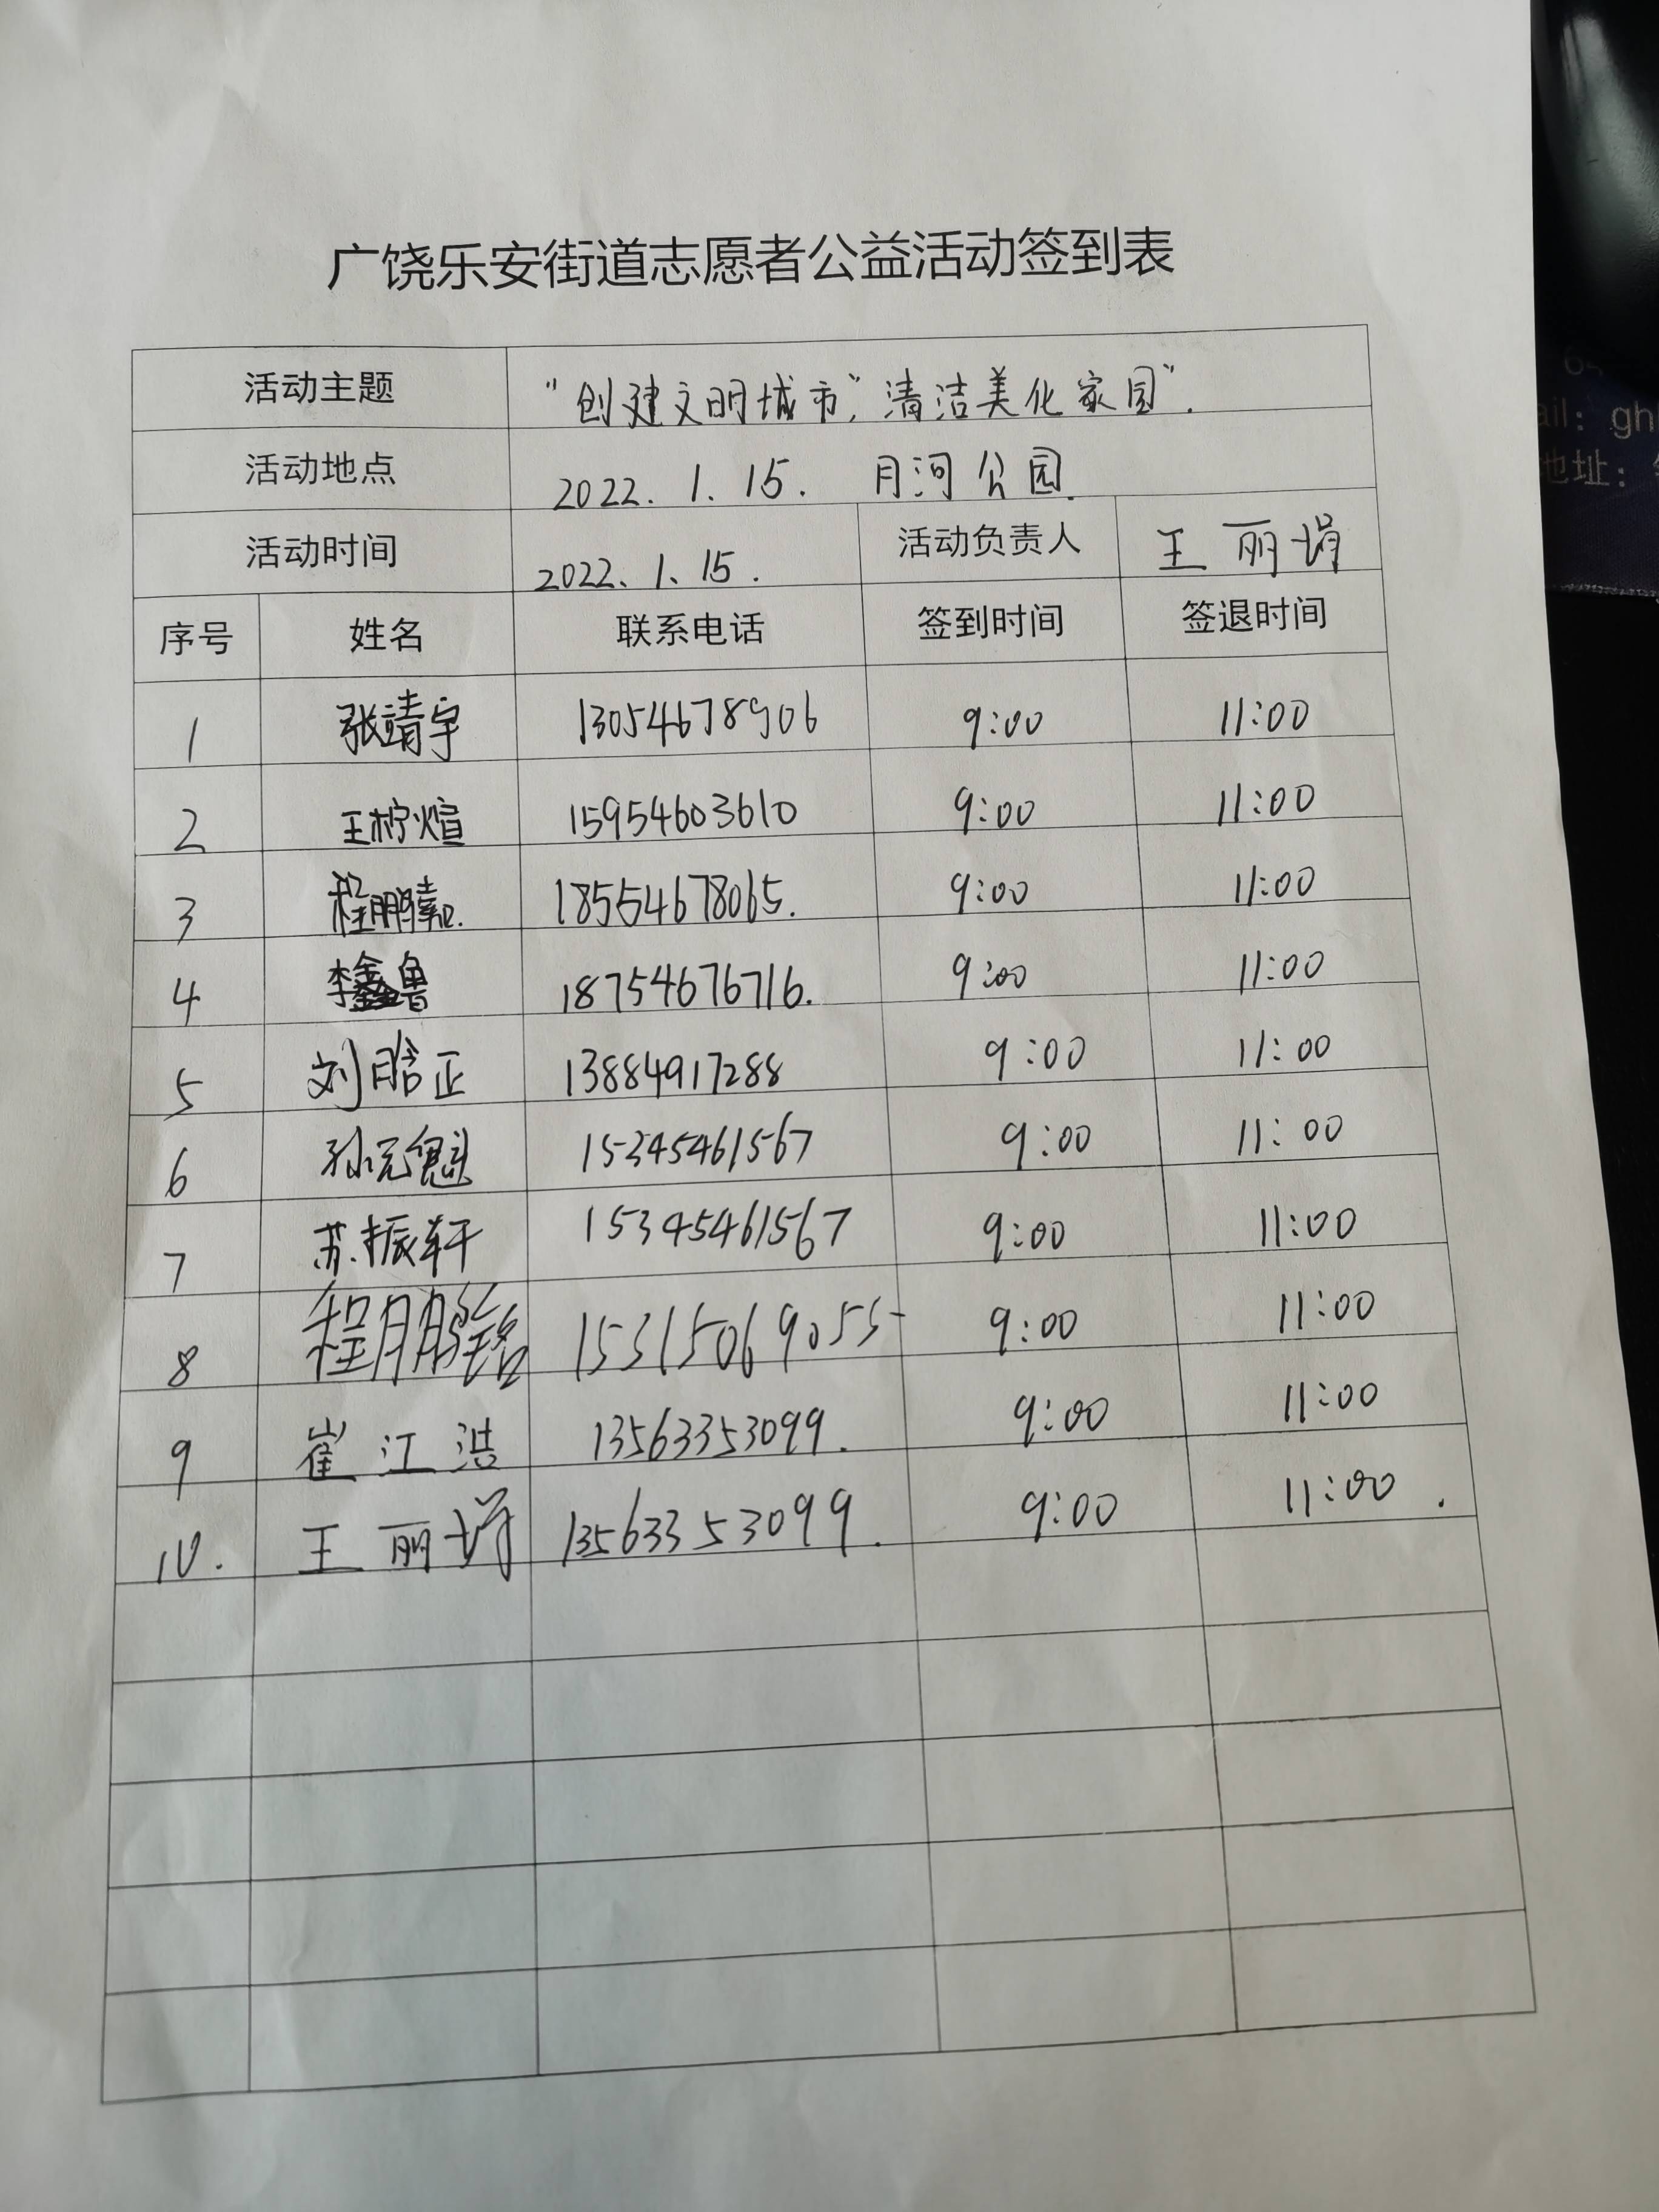 广饶乐安街道志愿者公益活动签到表
活动主题 "创建文明城市","清洁美化家园".
活动地点 2022. 1. 15. 月河公园.
活动时间 2022. 1. 15. 活动负责人 王丽娟
序号 姓名 联系电话 签到时间 签退时间
1 张靖宇 13054678906 9:00 11:00
2 王柠煊 15954603610 9:00 11:00
3 程鹏 18554678065. 9:00 11:00
4 李鑫鲁 18754676716. 9:00 11:00
5 刘晗正 13884917288 9:00 11:00
6 孙元魁 15345461567 9:00 11:00
7 苏振轩 15345461567 9:00 11:00
8 程鹏铭 15315069055 9:00 11:00
9 崔江浩 13563353099. 9:00 11:00
10. 王丽娟 13563353099. 9:00 11:00.
ail: gh
地址: